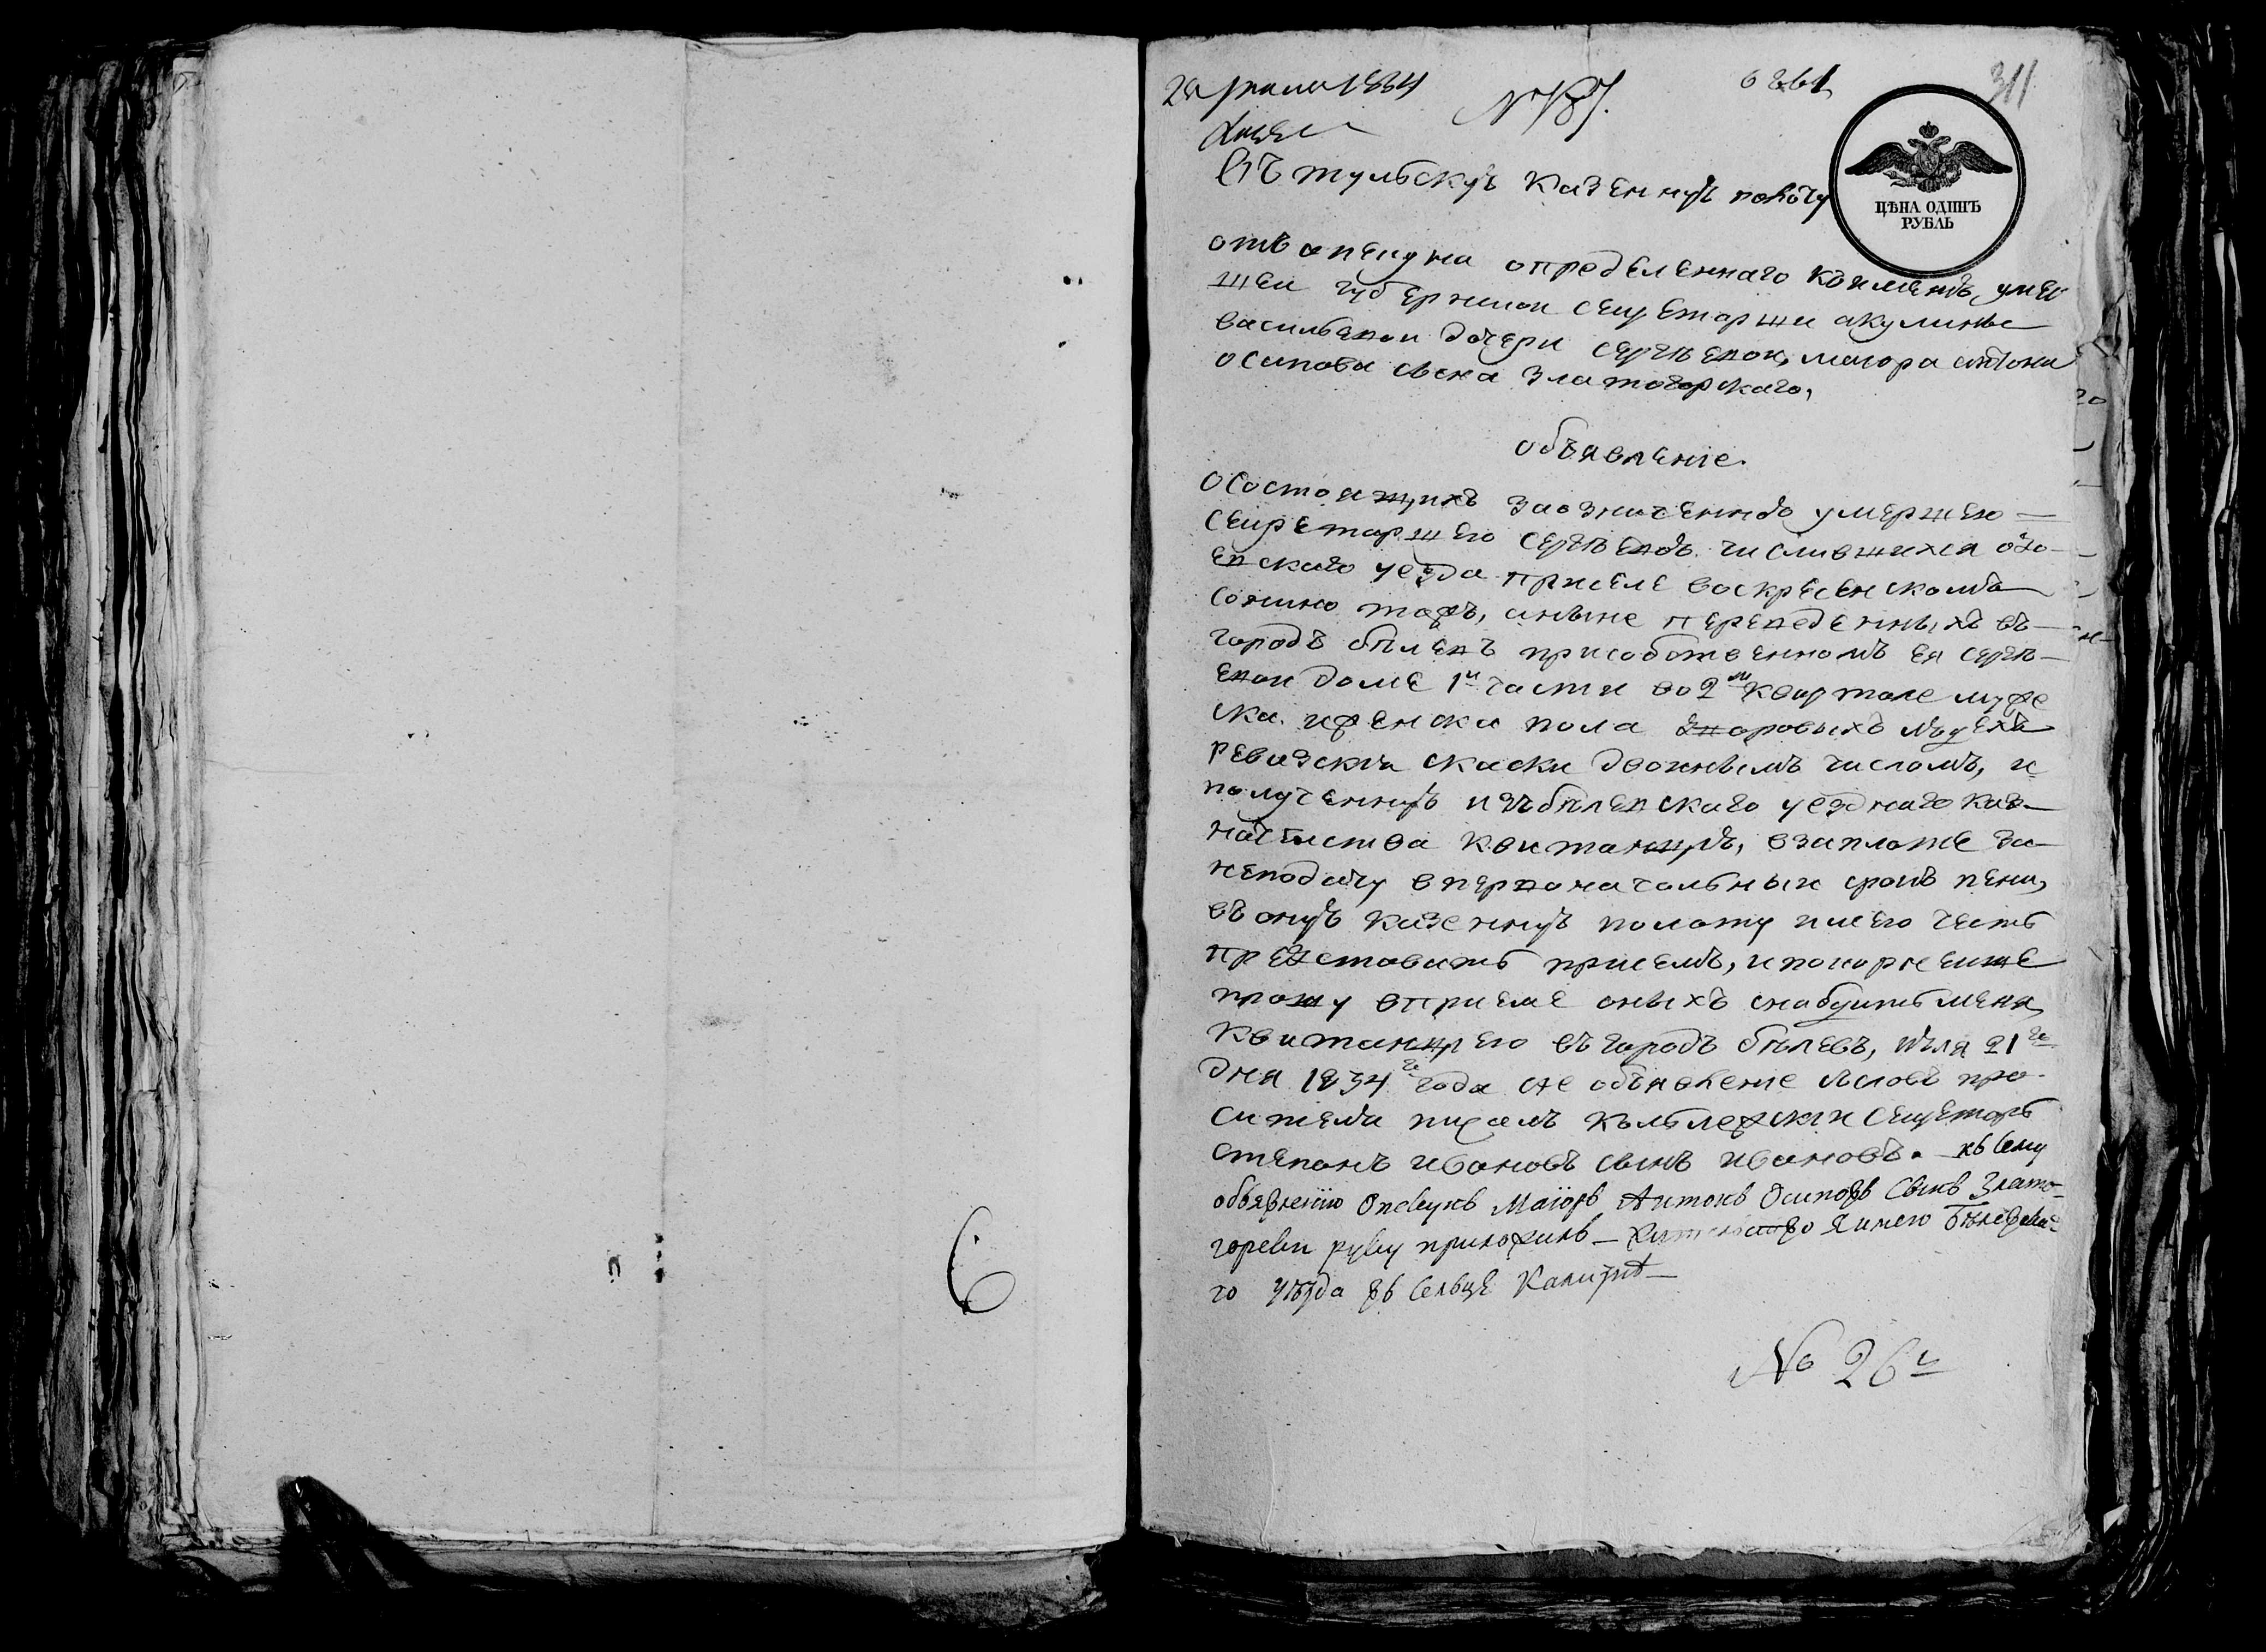 1834
№ 187.
311
Въ тульскую Казенную полату
ЦѢНА ОДИНЪ
РУБЛЬ
отъ опекуна определеннаго къ имению умер
шей губернской секретарши акулины
васильевой дочери сергѣевой, маиора антона
осипова сына Златогорскаго,
объявление.
о состоящихъ за означенною умершею
секретаршею сергѣевою числившихся одо-
евскаго уезда при селе воскресенскомъ
сонино тожъ, а ныне переведенныхъ въ
городъ бѣлевъ при собственномъ ея сергѣ-
евой доме 1й части во 2м квартале муже
ска и женска пола дворовыхъ людехъ
ревизския скаски двоинымъ числомъ, и
полученную изъ бѣлевскаго уезднаго каз-
начейства квитанцию, в заплоте за
неподачу в первоначальный срокъ пени,
въ оную казенную полату имею честь
представить при семъ, и покорнейше
прошу в приеме оныхъ снабдить меня
квитанциею въ городъ бѣлевъ, июля 21го
дня 1834го года сие объявление со словъ про-
сителя писалъ колѣжский секретарь
степанъ ивановъ сынъ ивановъ. къ сему
объявлению Опекунъ Маіоръ Антонъ Осиповъ Сынъ Злато-
горски руку приложилъ – Жительство я имею Бѣлевска-
го уѣзда въ сельце
№ 26й
6